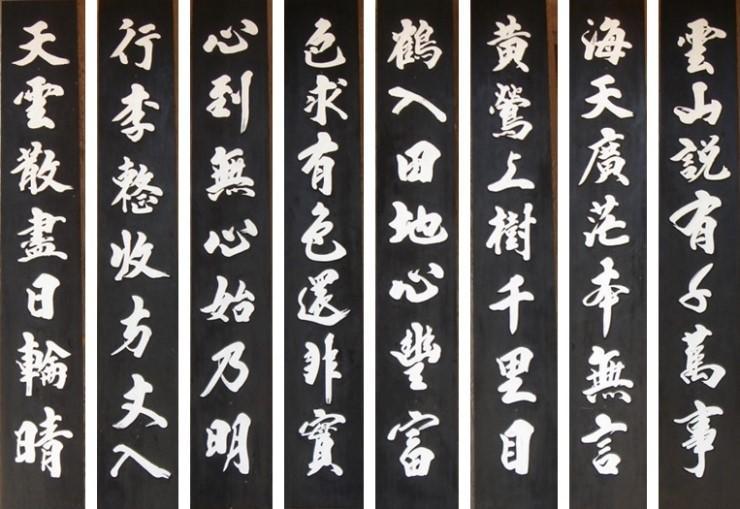 雲山說有千萬事
海天廣茫本無言
黃鶯上樹千里目
鶴入田地心豐富
色求有色還非實
心到無心始乃明
行李整收方丈入
天雲散盡日輪晴